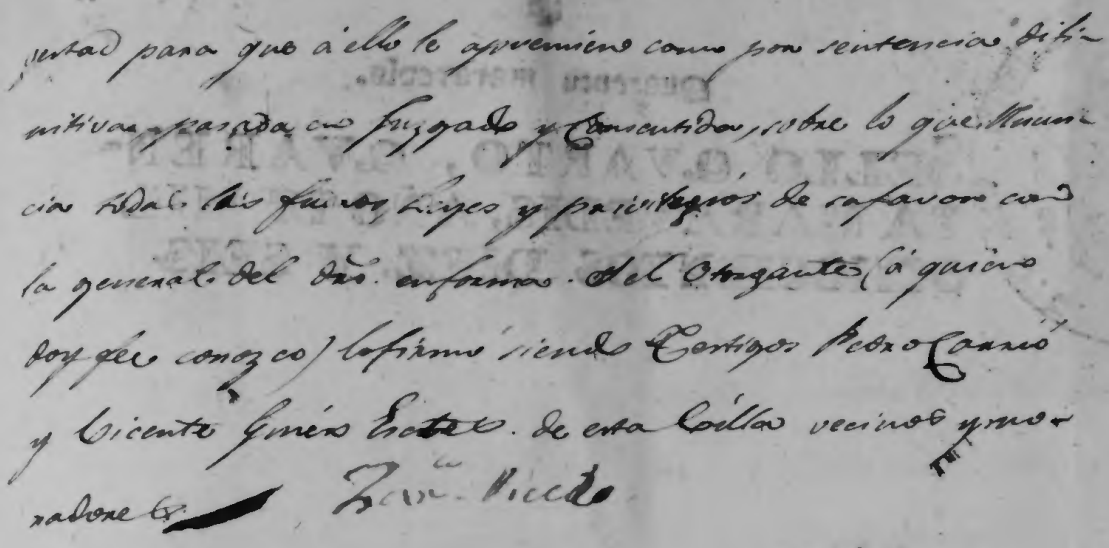 testad para que á ello le apremiene como por sentencia difi-
nitiva, pasada en Juzgado y Consentida, sobre lo que Renun-
cia todas las fueros, Leyes y privilegios de su favor con
la general del dro. en forma. Y el Otorgante (á quien
doy fee conozco) lo firmó siendo Testigos Pedro Carrió
y Vicente Ginér de esta Villa vecinos y mo-
radores